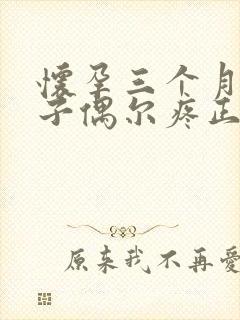 怀孕三个月
子偶尔疼正
原来我不再爱